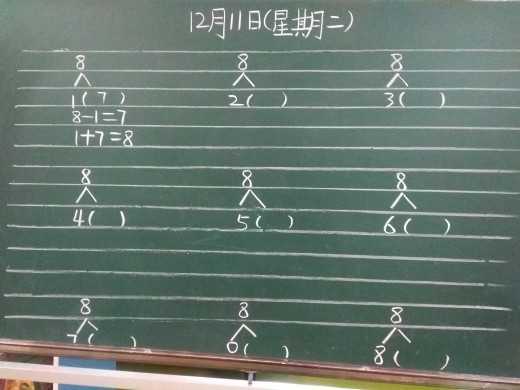 12月11日(星期二)
8 8 8
1(7) 2( ) 3( )
8-1=7
1+7=8
8 8 8
4( ) 5( ) 6( )
8 8 8
7( ) 0( ) 8( )